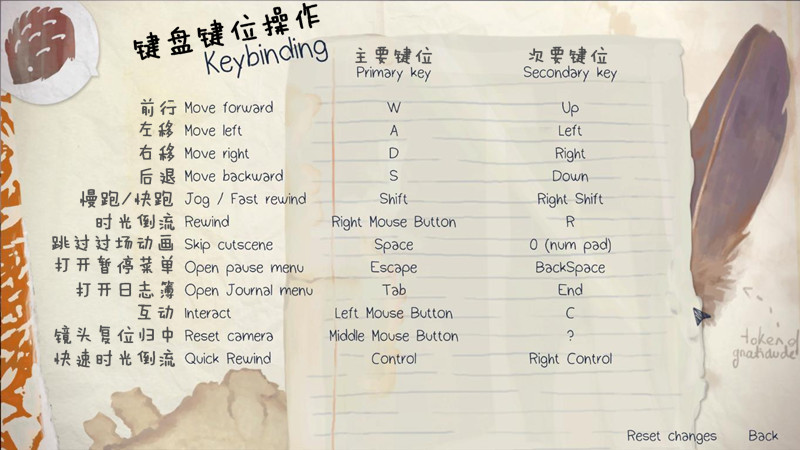 键盘键位操作
Keybinding
主要键位 次要键位
Primary key Secondary key
前行 Move forward W Up
左移 Move left A Left
右移 Move right D Right
后退 Move backward S Down
慢跑/快跑 Jog / Fast rewind Shift Right Shift
时光倒流 Rewind Right Mouse Button R
跳过过场动画 Skip cutscene Space 0 (num pad)
打开暂停菜单 Open pause menu Escape BackSpace
打开日志簿 Open Journal menu Tab End
互动 Interact Left Mouse Button C
镜头复位归中 Reset camera Middle Mouse Button ?
快速时光倒流 Quick Rewind Control Right Control
token of
gratitude
Reset changes Back